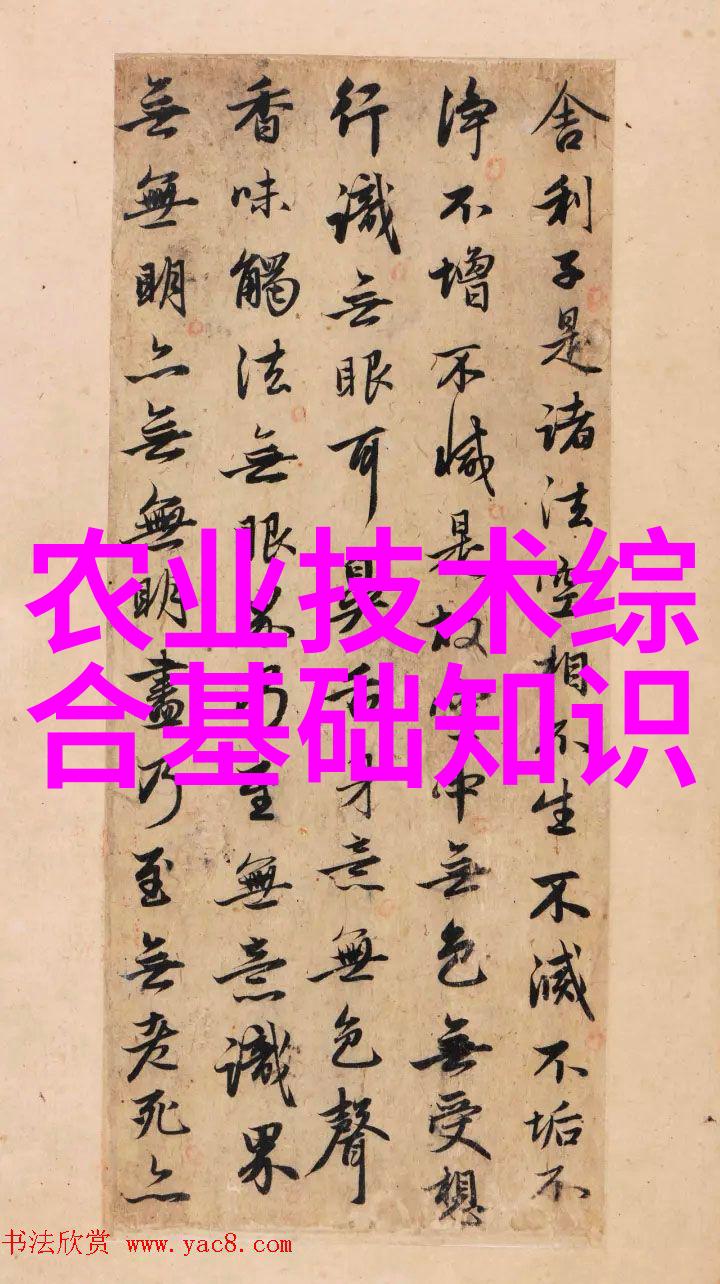 舍利子是諸法空相不生不滅不垢不
淨不增不減是故空中無色無受想
行識無眼耳鼻舌身意無色聲
香味觸法無眼界乃至無意識界
無無明亦無無明盡乃至無老死亦
农业技术综
合基础知识
书法欣赏 www.yac8.com